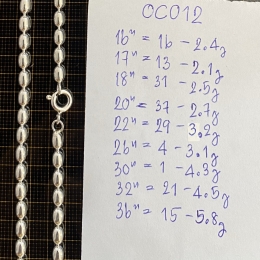 OCO12
16" = 16 - 2.4g
17" = 13 - 2.1g
18" = 31 - 2.5g
20" = 37 - 2.7g
22" = 29 - 3.2g
26" = 4 - 3.1g
30" = 1 - 4.3g
32" = 21 - 4.5g
36" = 15 - 5.8g